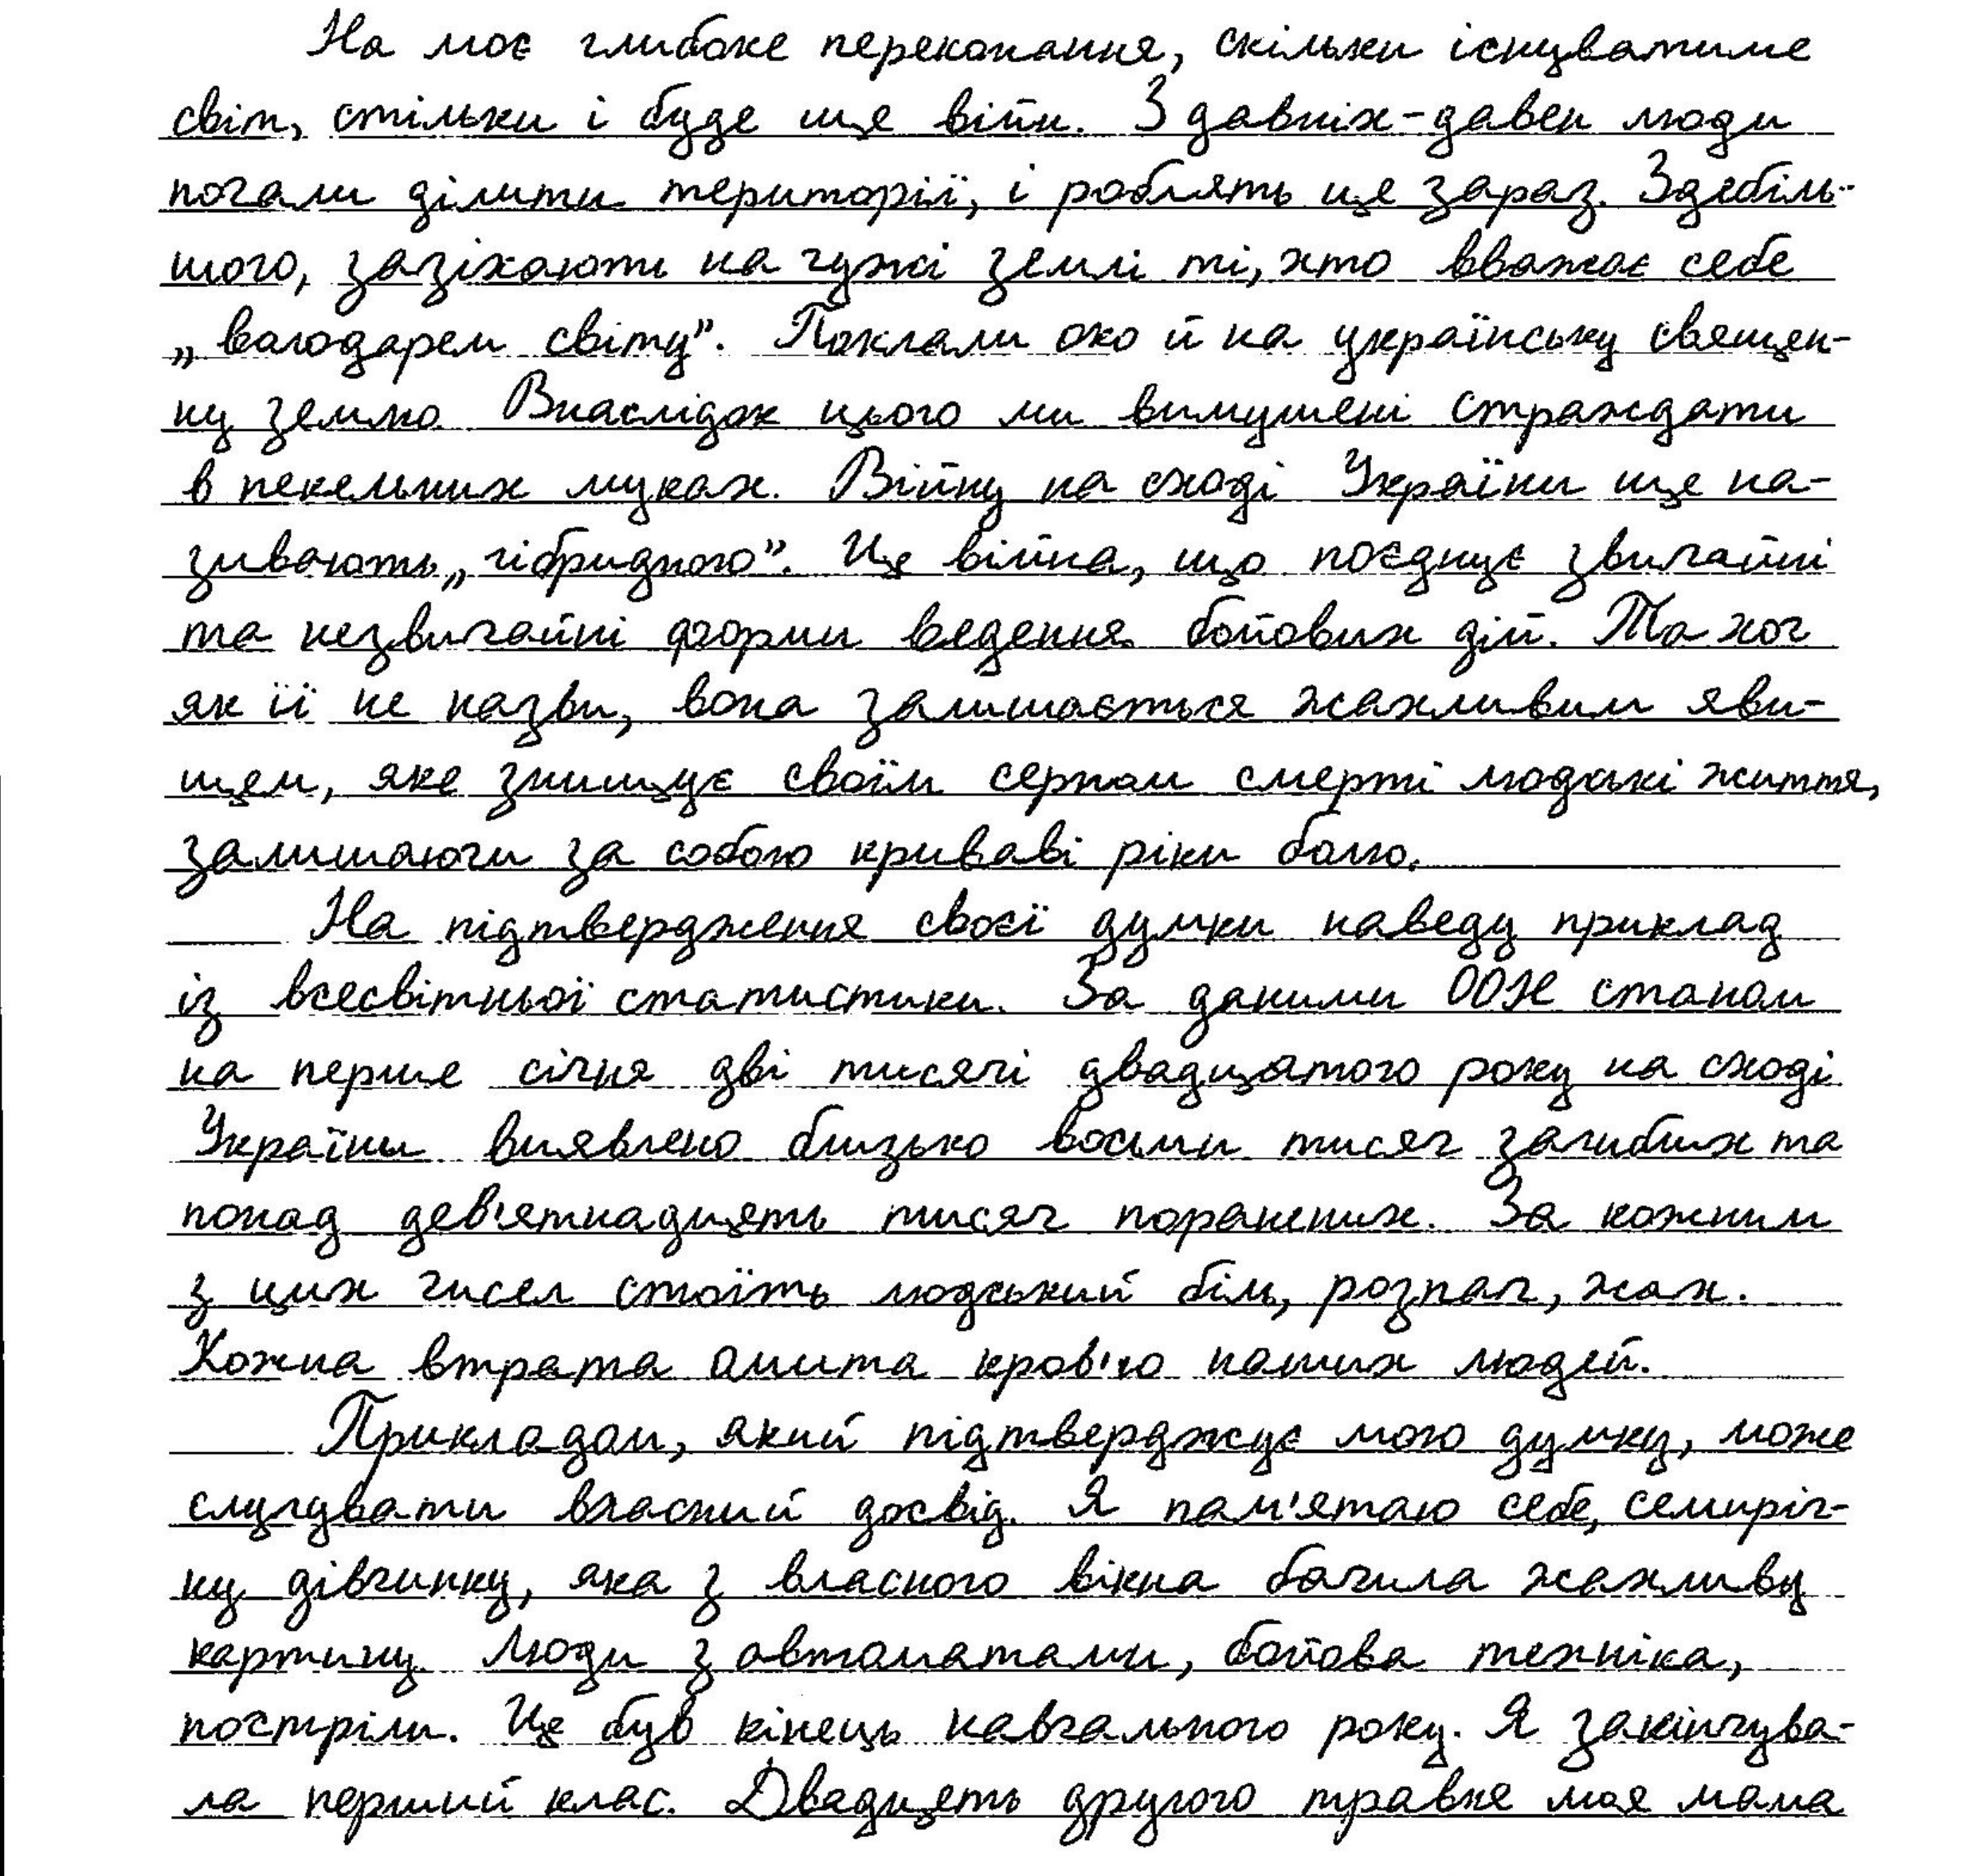 На моє глибоке переконання, скільки існуватиме
світ, стільки і буде ще війн. З давніх-давен люди
почали ділити території, і роблять це зараз. Здебіль-
шого, зазіхають на чужі землі ті, хто вважає себе
„володарем світу”. Поклали око й на українську священ-
ну землю. Внаслідок цього ми вимушені страждати
в пекельних муках. Війну на сході України ще на-
зивають „гібридною”. Це війна, що поєднує звичайні
та незвичайні форми ведення бойових дій. Та хоч
як її не назви, вона залишається жахливим яви-
щем, яке знищує своїм серпом смерті людські життя,
залишаючи за собою криваві ріки болю.
На підтвердження своєї думки наведу приклад
із всесвітньої статистики. За даними ООН станом
на перше січня дві тисячі двадцятого року на сході
України виявлено близько восьми тисяч загиблих та
понад дев'ятнадцять тисяч поранених. За кожним
з цих чисел стоїть людський біль, розпач, жах.
Кожна втрата омита кров'ю наших людей.
Прикладом, який підтверджує мою думку, може
слугувати власний досвід. Я пам'ятаю себе, семиріч-
ну дівчинку, яка з власного вікна бачила жахливу
картину. Люди з автоматами, бойова техніка,
постріли. Це був кінець навчального року. Я закінчува-
ла перший клас. Двадцять другого травня моя мама